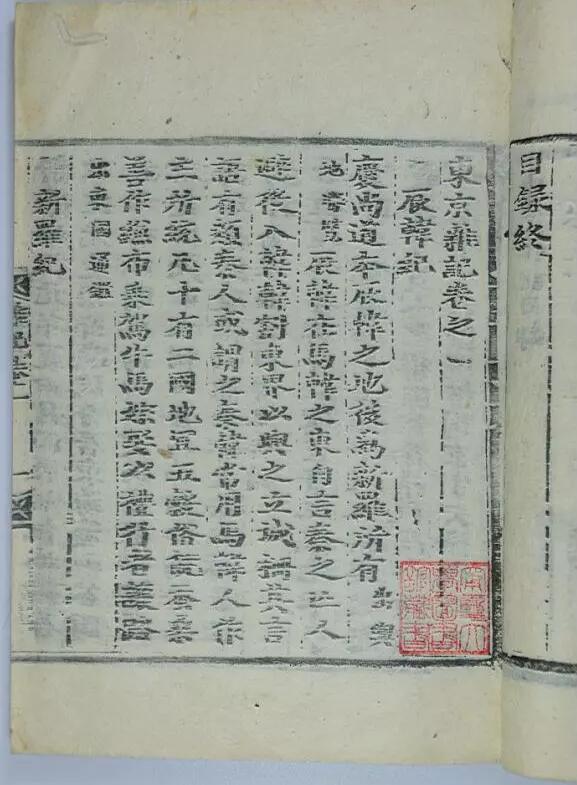 目錄終
東京雜記卷之一
辰韓紀
慶尚道本辰韓之地後為新羅所有 出輿
地勝覽 辰韓在馬韓之東自言秦之亡人
避役入韓韓割東界以與之立城柵其言
語有類秦人或謂之秦韓常用馬韓人作
主所統凡十有二國地宜五穀俗饒蚕桑
善作縑布乘駕牛馬嫁娶以禮行者讓路
出東國通鑑
新羅紀